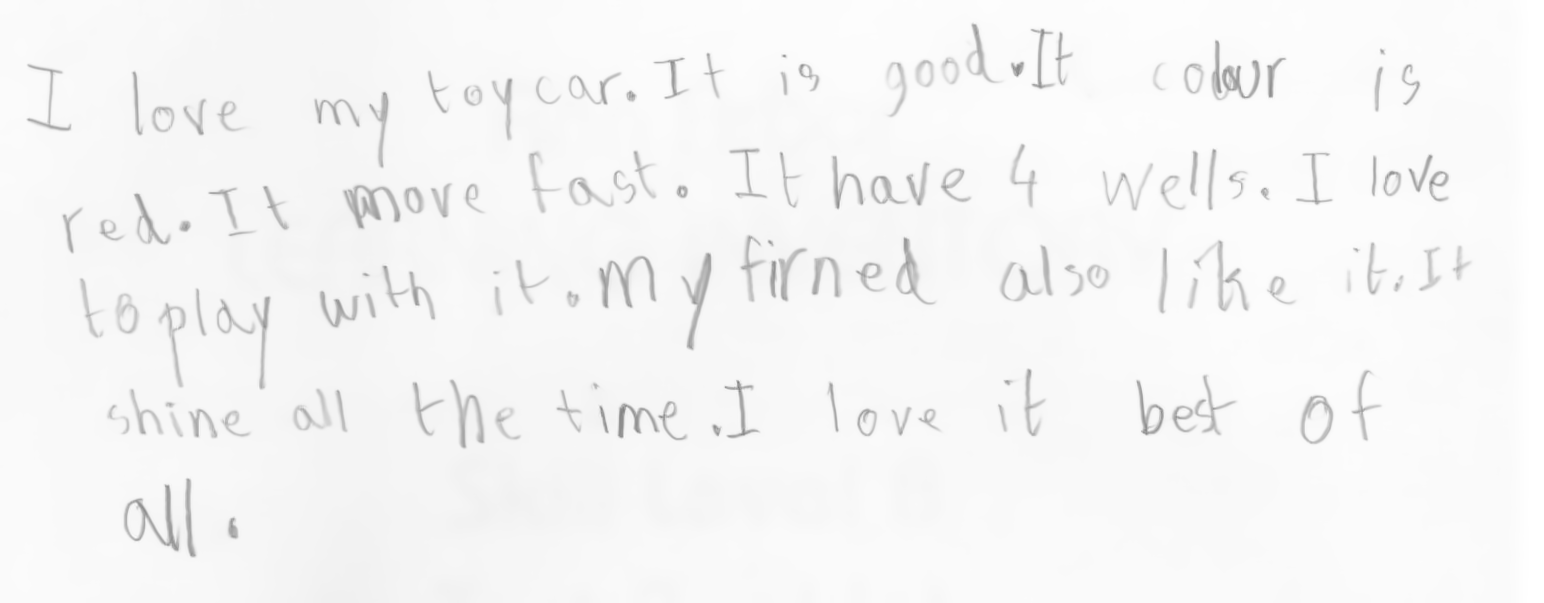 I love my toy car. It is good. It colour is
red. It move fast. It have 4 wells. I love
to play with it. My firned also like it. It
shine all the time. I love it best of
all.